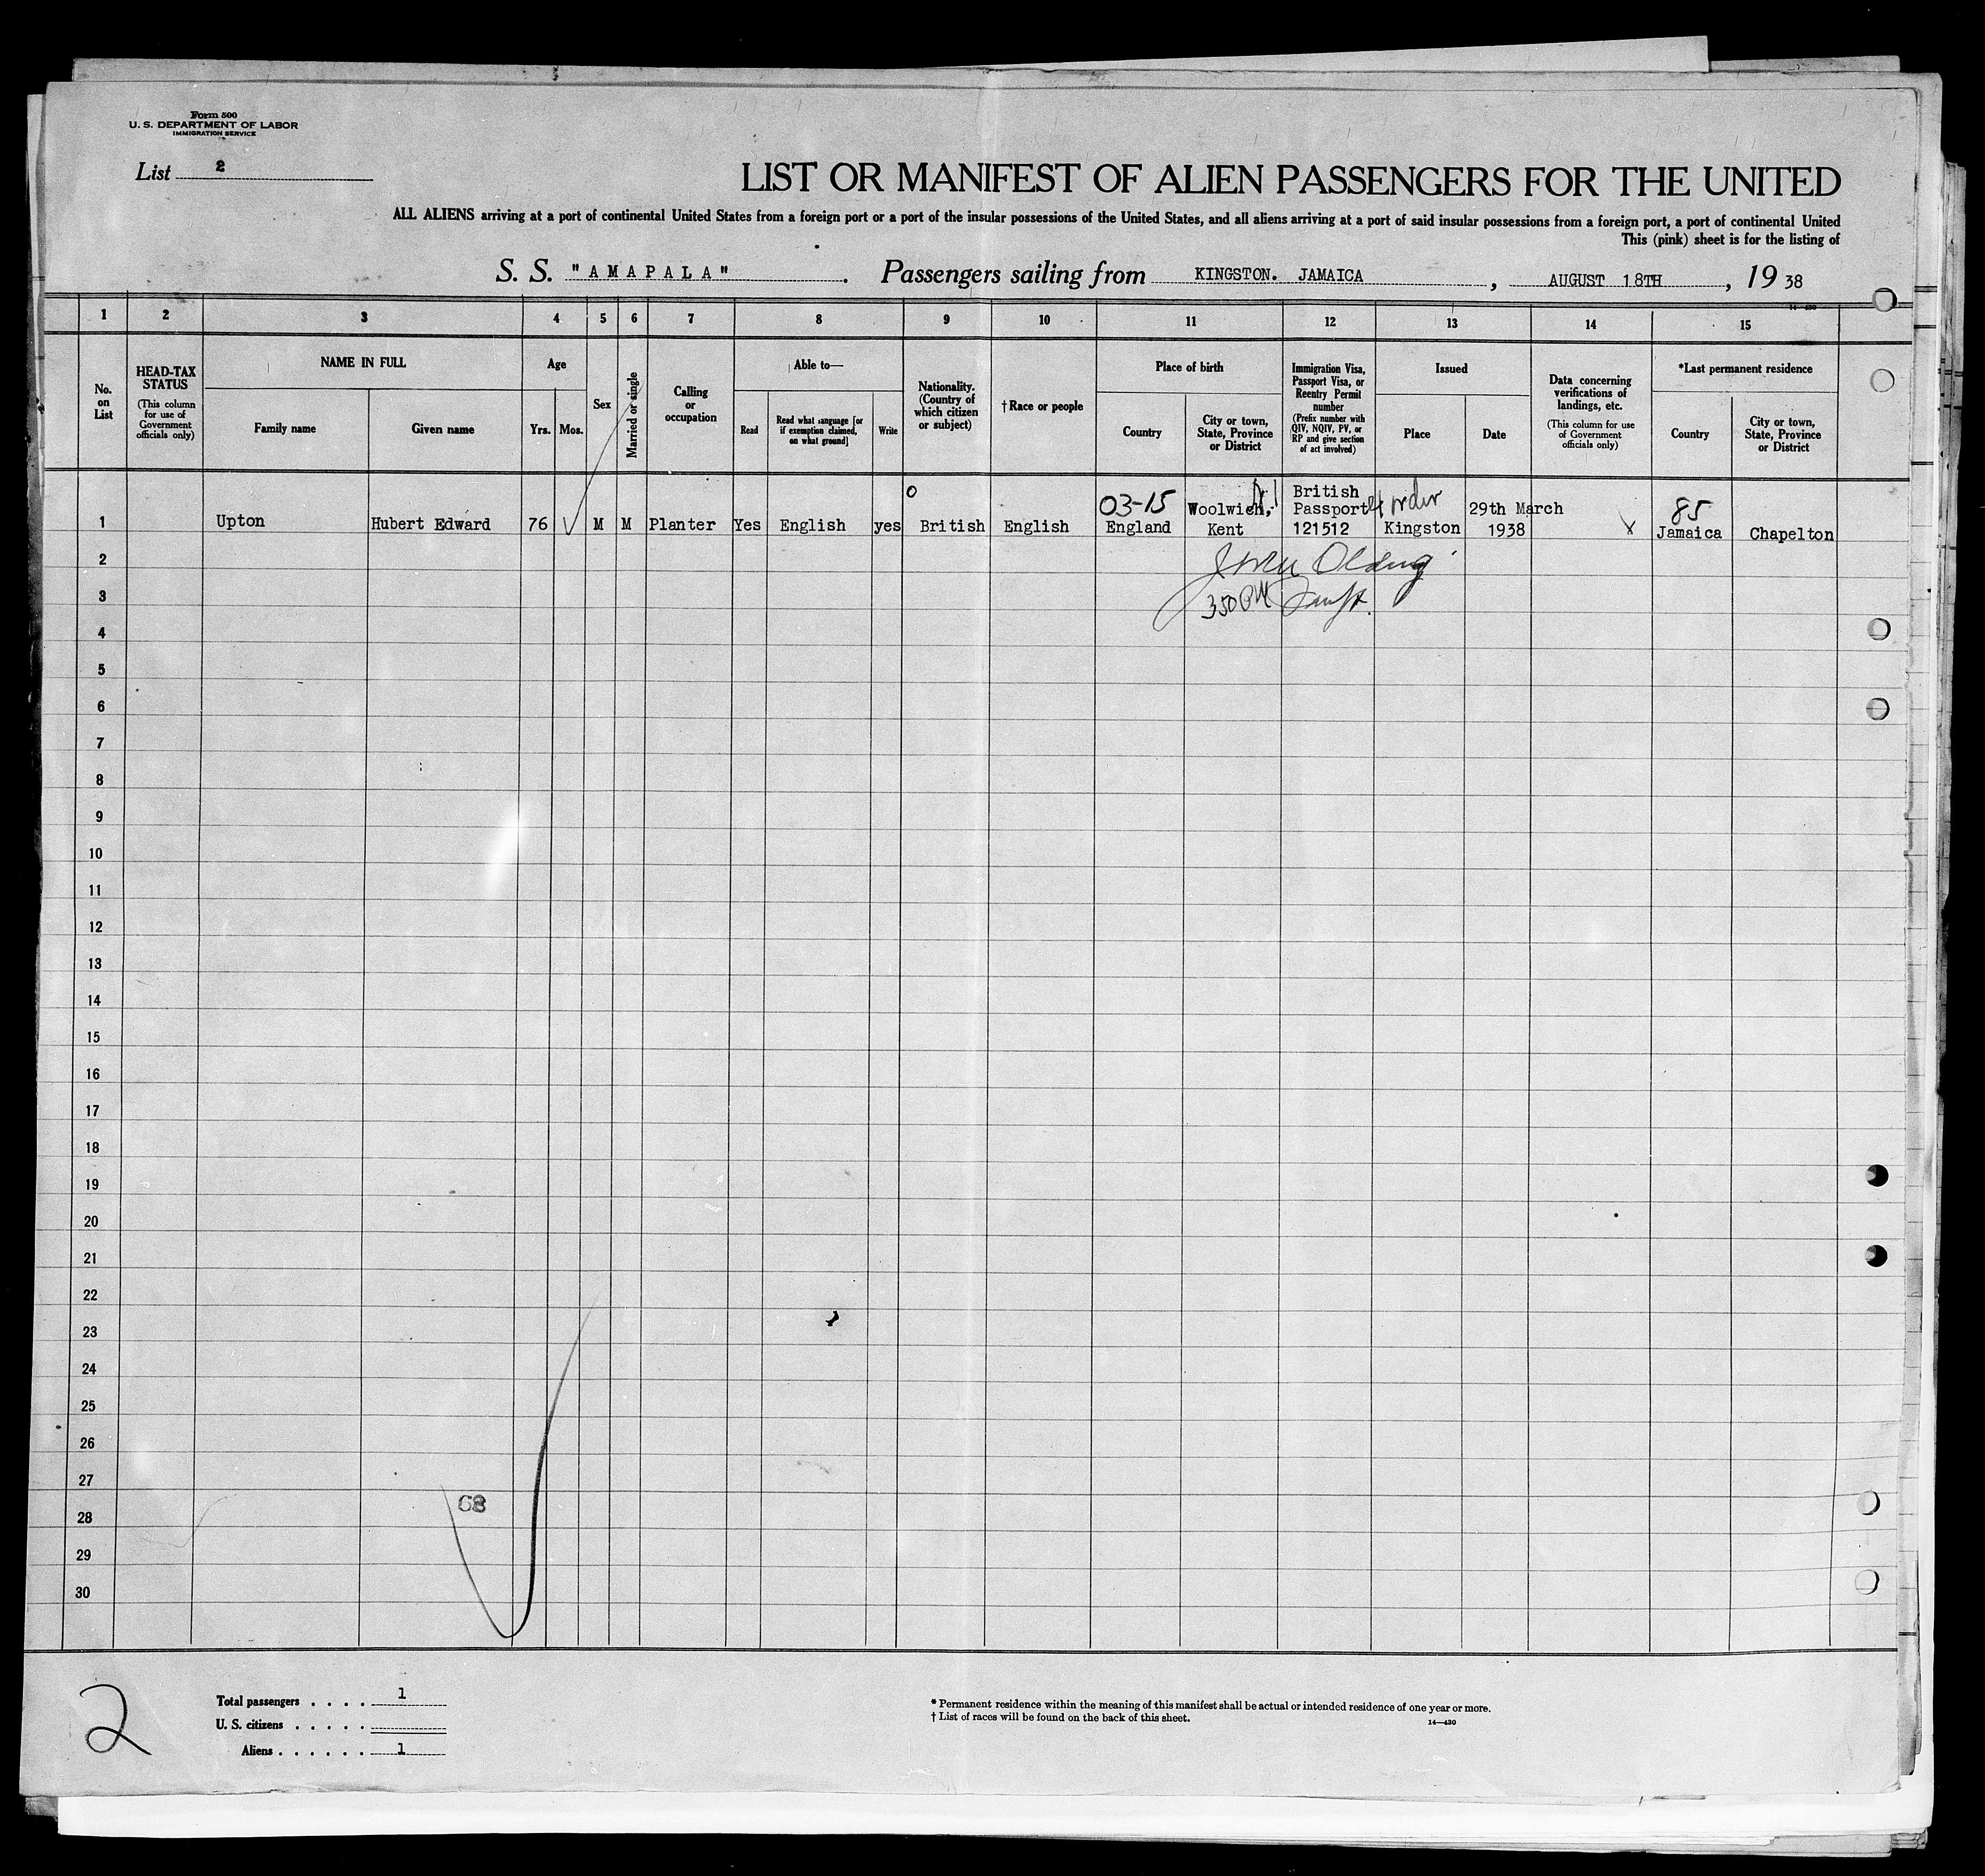 Form 500
U. S. DEPARTMENT OF LABOR
IMMIGRATION SERVICE
List 2
LIST OR MANIFEST OF ALIEN PASSENGERS FOR THE UNITED
ALL ALIENS arriving at a port of continental United States from a foreign port or a port of the insular possessions of the United States, and all aliens arriving at a port of said insular possessions from a foreign port, a port of continental United
This (pink) sheet is for the listing of
S. S. "AMAPALA" . Passengers sailing from KINGSTON. JAMAICA , AUGUST 18TH , 19 38
14—430
1 2 3 4 5 6 7 8 9 10 11 12 13 14 15
No. on List
HEAD-TAX STATUS
(This column for use of Government officials only)
NAME IN FULL
Family name
Given name
Age
Yrs. Mos.
Sex
Married or single
Calling or occupation
Able to—
Read
Read what language [or if exemption claimed, on what ground]
Write
Nationality. (Country of which citizen or subject)
†Race or people
Place of birth
Country
City or town, State, Province or District
Immigration Visa, Passport Visa, or Reentry Permit number
(Prefix number with QIV, NQIV, PV, or RP and give section of act involved)
Issued
Place
Date
Data concerning verifications of landings, etc.
(This column for use of Government officials only)
*Last permanent residence
Country
City or town, State, Province or District
0 03-15 Woolwich, British Passport order 29th March 85
1 Upton Hubert Edward 76 M M Planter Yes English yes British English England Kent 121512 Kingston 1938 Jamaica Chapelton
2
3 350
4
5
6
7
8
9
10
11
12
13
14
15
16
17
18
19
20
21
22
23
24
25
26
27
68
28
29
30
2
Total passengers . . . . 1
U. S. citizens . . . . .
Aliens . . . . . . 1
* Permanent residence within the meaning of this manifest shall be actual or intended residence of one year or more.
† List of races will be found on the back of this sheet.
14—430